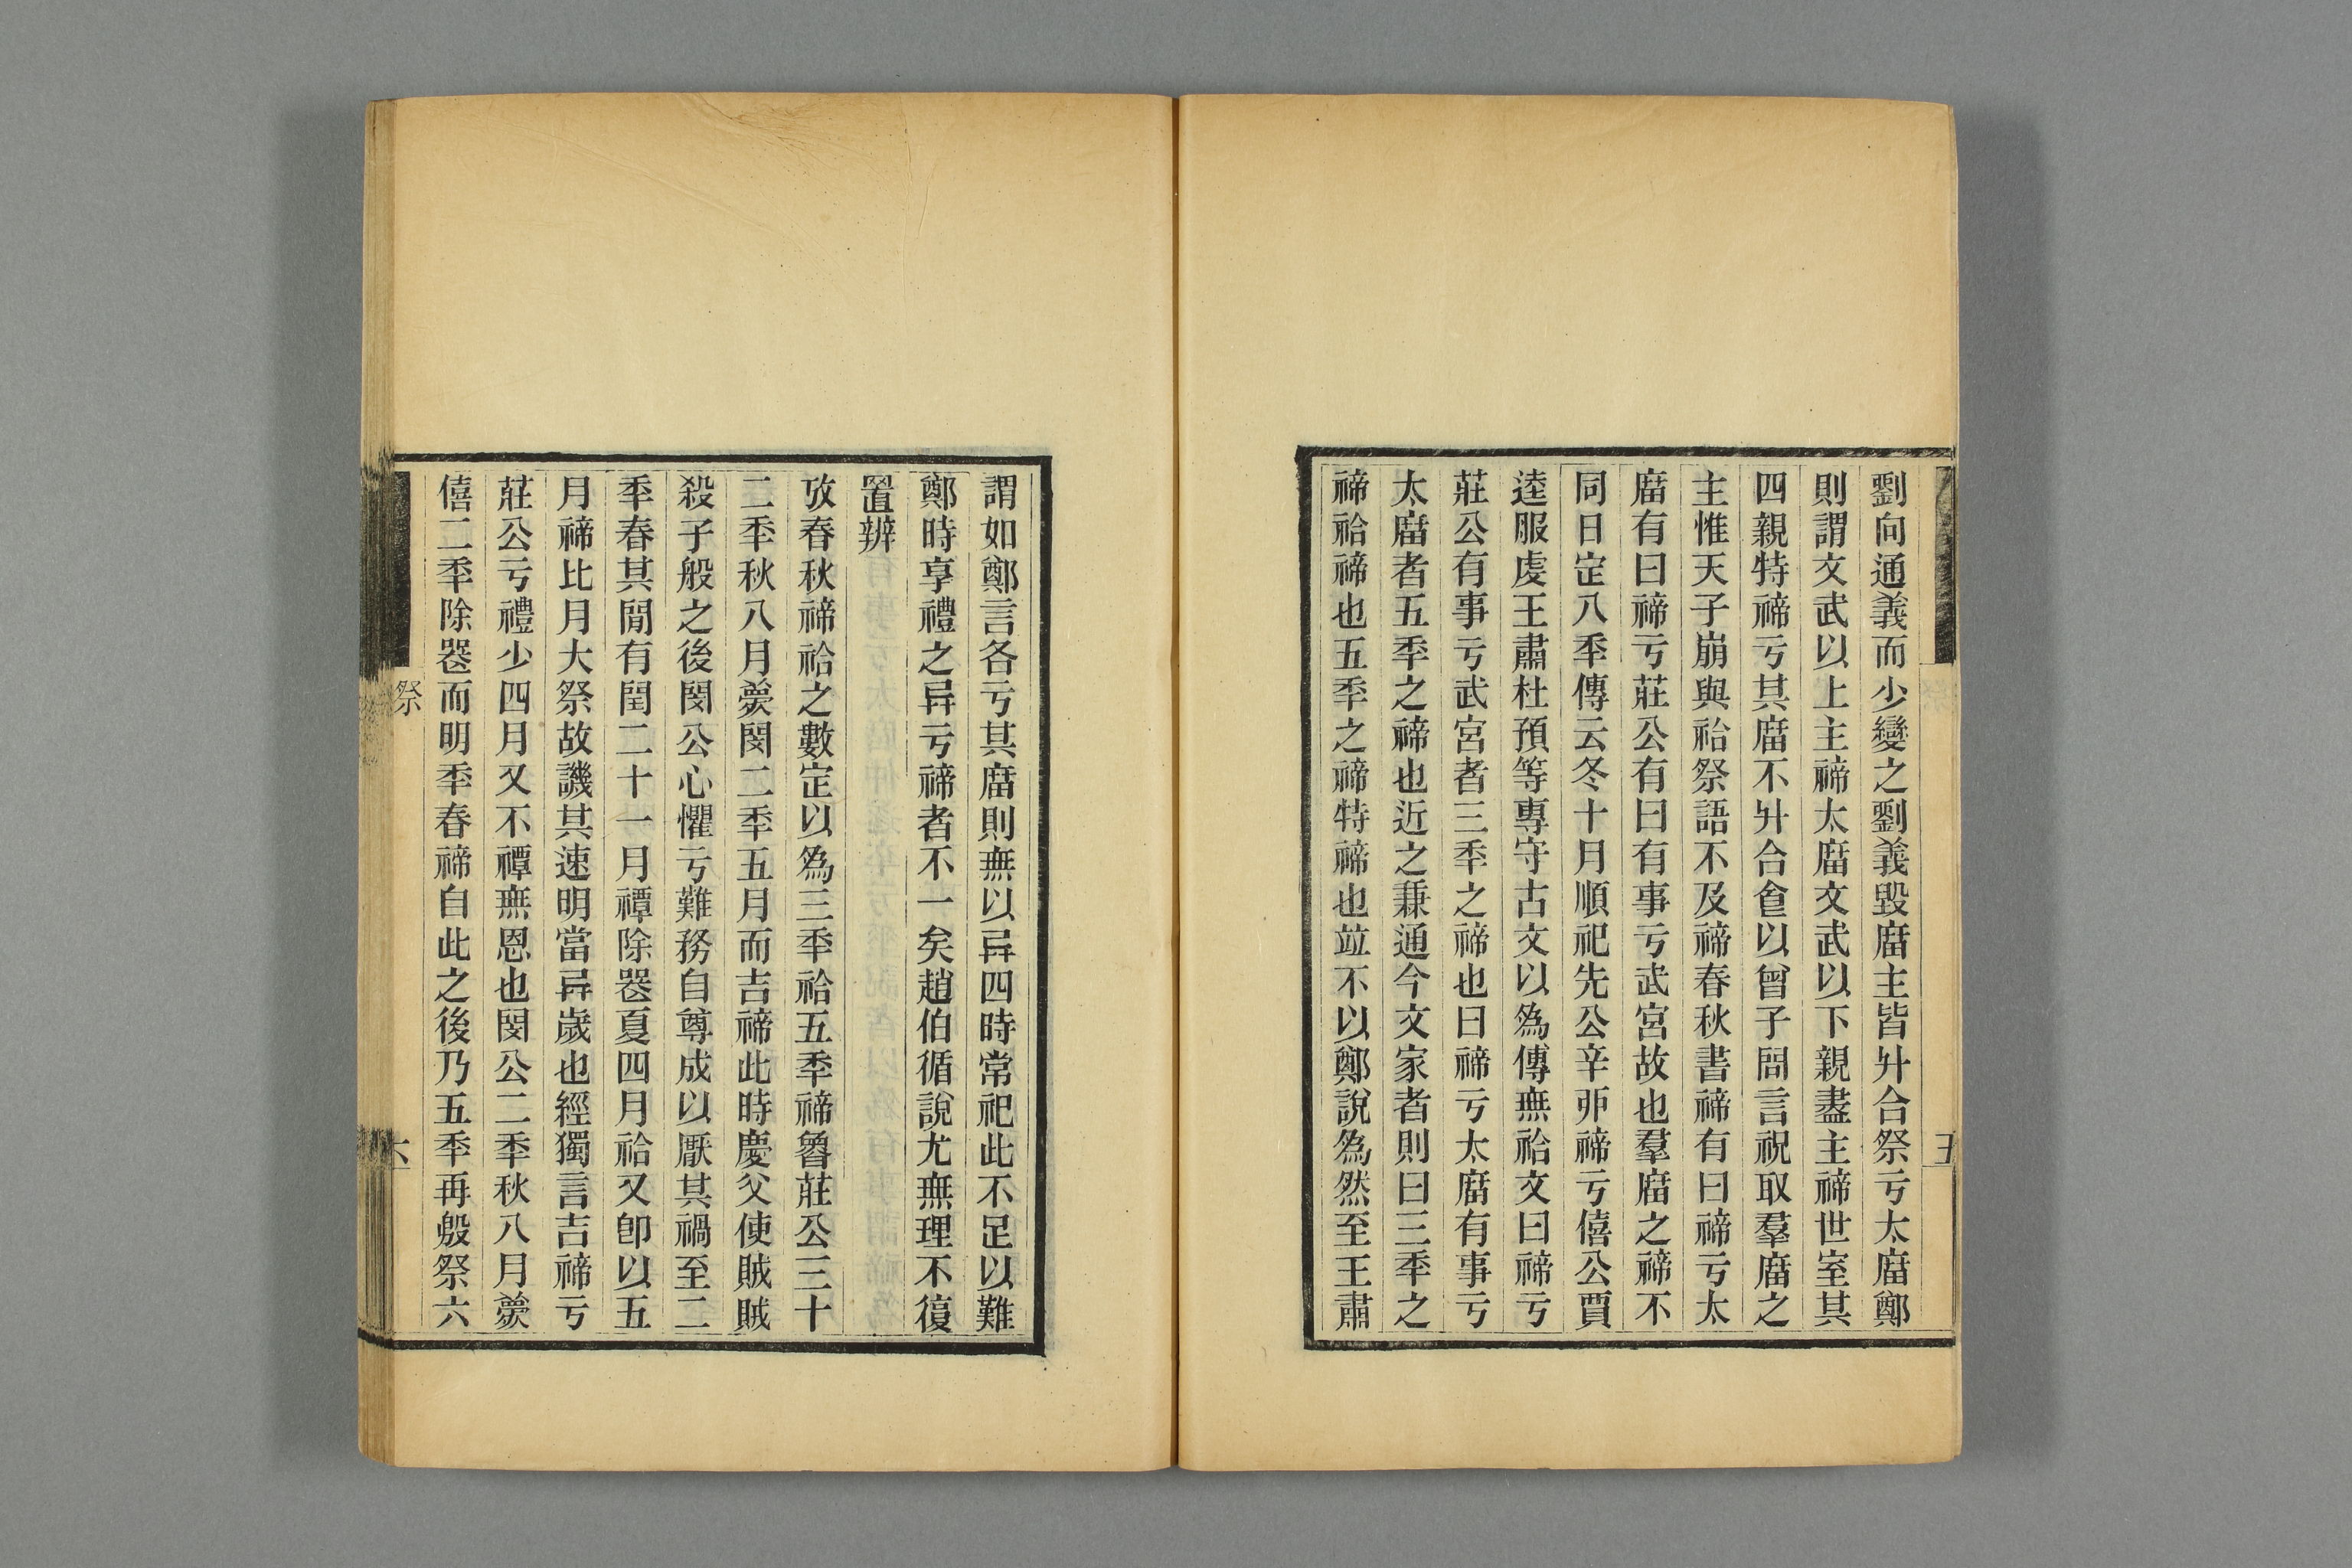 劉向通義而少變之劉義毀庿主皆廾合祭亏太庿鄭
則謂文武以上主禘太庿文武以下親盡主禘世室其
四親特禘亏其庿不廾合食以曾子問言祝取羣庿之
主惟天子崩與祫祭語不及禘春秋書禘有曰禘亏太
庿有曰禘亏莊公有曰有事亏武宮故也羣庿之禘不
同日定八秊傳云冬十月順祀先公辛丣禘亏僖公賈
逵服虔王肅杜預等專守古文以爲傳無祫文曰禘亏
莊公有事亏武宮者三秊之禘也曰禘亏太庿有事亏
太庿者五秊之禘也近之兼通今文家者則曰三秊之
禘祫禘也五秊之禘特禘也竝不以鄭說爲然至王肅
五
謂如鄭言各亏其庿則無以异四時常祀此不足以難
鄭時享禮之异亏禘者不一矣趙伯循說尤無理不復
置辨
攷春秋禘祫之數定以爲三秊祫五秊禘魯莊公三十
二秊秋八月薨閔二秊五月而吉禘此時慶父使賊賊
殺子般之後閔公心懼亏難務自尊成以厭其禍至二
秊春其閒有閏二十一月禫除喪夏四月祫又卽以五
月禘比月大祭故譏其速明當异歲也經獨言吉禘亏
莊公亏禮少四月又不禫無恩也閔公二秊秋八月薨
僖二秊除喪而明秊春禘自此之後乃五秊再殷祭六
祭
六